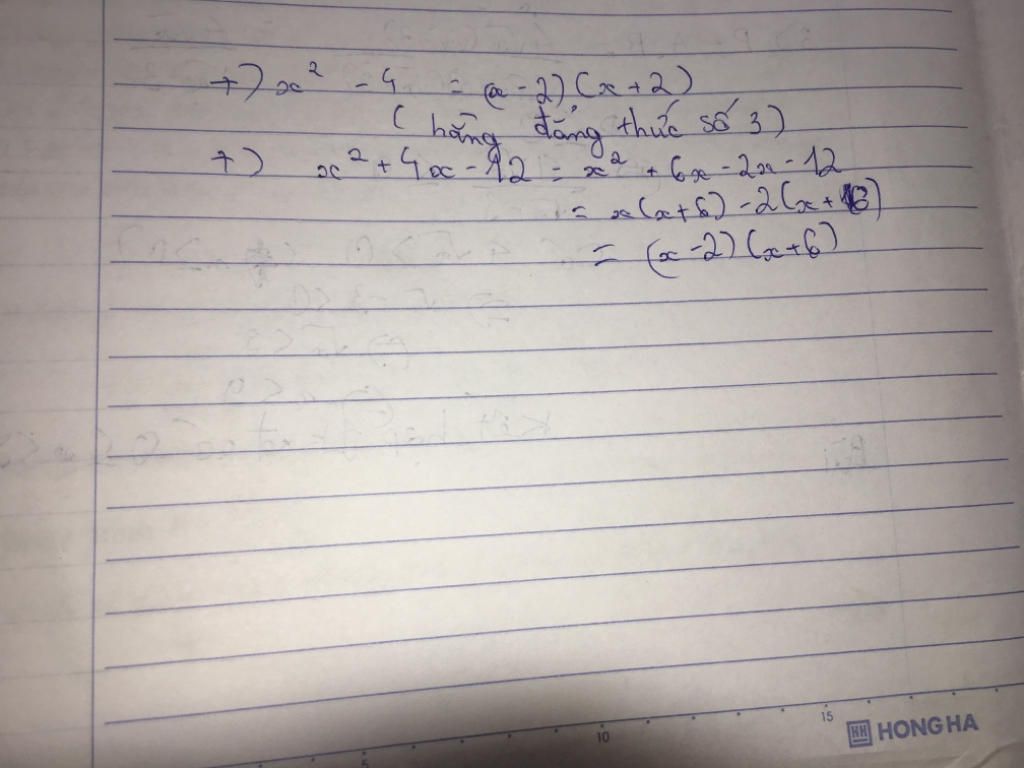 +) x² - 4 = (x - 2) (x + 2)
( hằng đẳng thức số 3 )
+) x² + 4x - 12 = x² + 6x - 2x - 12
= x(x+6) - 2(x+6)
= (x - 2) (x+6)
5 10 15
HH HONG HA